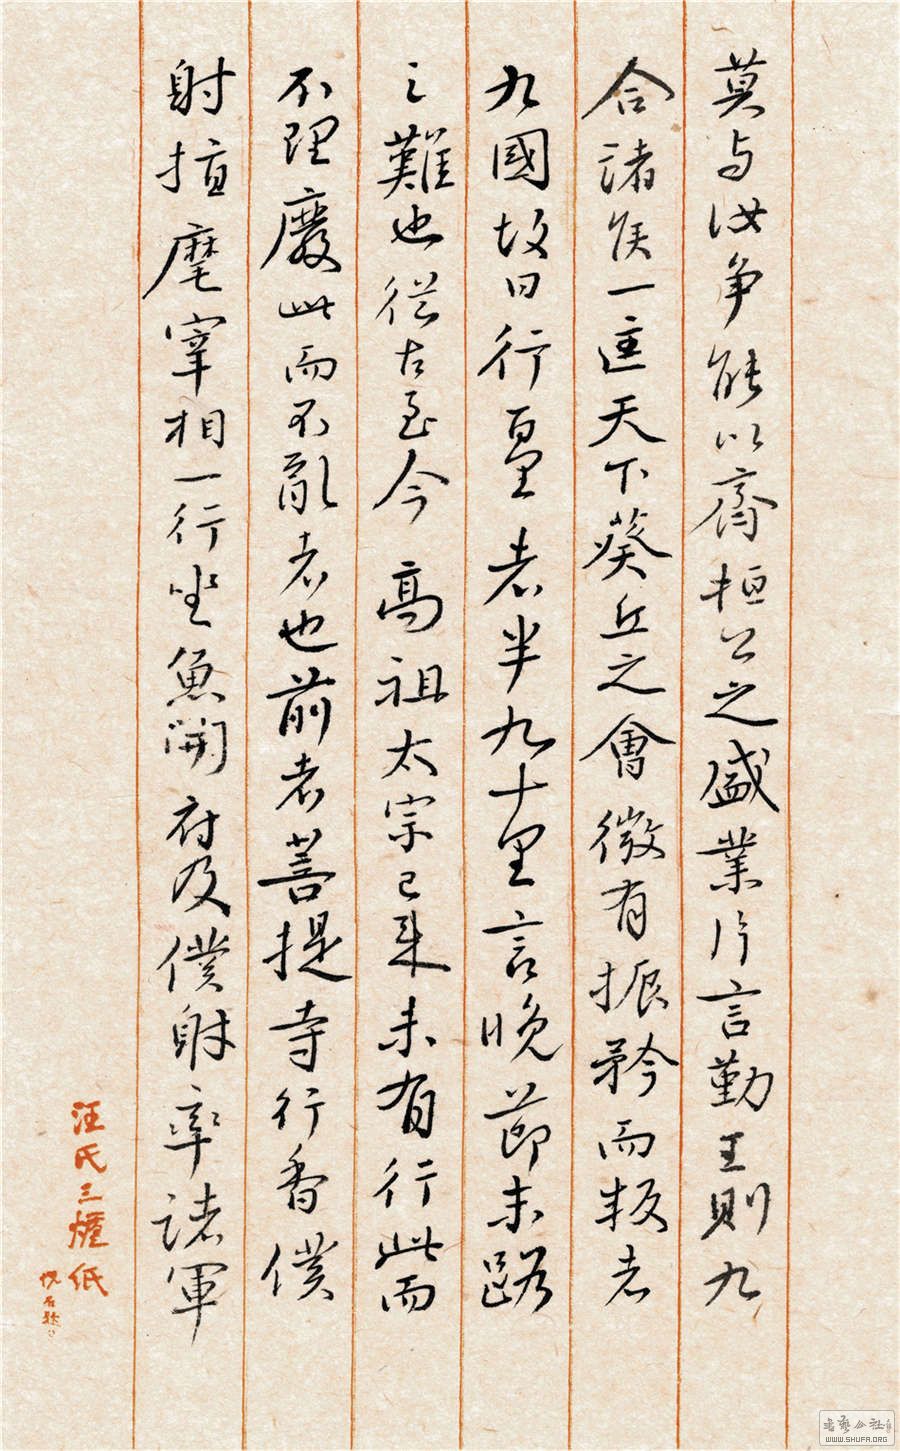 莫与汝争能以齊桓公之盛業片言勤王則九
合諸侯一匡天下葵丘之會微有振矜而叛者
九國故曰行百里者半九十里言晚節末路
之難也從古至今高祖太宗已來未有行此而
不理廢此而不亂者也前者菩提寺行香僕
射指麾宰相一行坐魚開府及僕射率諸軍
汪氏三爐紙
書藝公社
WWW.SHUFA.ORG